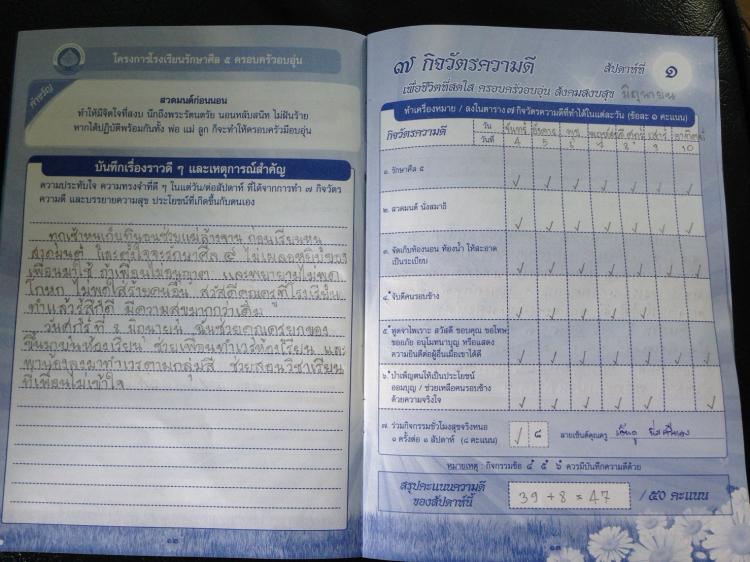 โครงการโรงเรียนรักษาศีล ๕ ครอบครัวอบอุ่น
คำขวัญ
สวดมนต์ก่อนนอน
ทำให้มีจิตใจที่สงบ นึกถึงพระรัตนตรัย นอนหลับสนิท ไม่ฝันร้าย
หากได้ปฏิบัติพร้อมกันทั้ง พ่อ แม่ ลูก ก็จะทำให้ครอบครัวมีอบอุ่น
บันทึกเรื่องราวดี ๆ และเหตุการณ์สำคัญ
ความประทับใจ ความทรงจำที่ดี ๆ ในแต่วัน/ต่อสัปดาห์ ที่ได้จากการทำ ๗ กิจวัตร
ความดี และบรรยายความสุข ประโยชน์ที่เกิดขึ้นกับตนเอง
ทุกเช้าหนูเก็บที่นอนช่วยแม่ล้างจาน ก่อนเรียนหนู
สวดมนต์ และตั้งใจจะรักษาศีล ๕ ไม่เผลอหยิบของ
เพื่อนมาใช้ ถ้าเพื่อนไม่อนุญาต และพยายามไม่พูด
โกหก ไม่พูดใส่ร้ายคนอื่น สวัสดีคุณครูที่โรงเรียน
ทำแล้วรู้สึกดี มีความสุขมากกว่าเดิม
วันศุกร์ที่ 8 มิถุนายน ฉันช่วยคุณครูยกของ
ขึ้นมาบนห้องเรียน ช่วยเพื่อนทำเวรห้องเรียน และ
พาน้องลงมาทำเวรตามกลุ่มสี ช่วยสอนวิชาเรียน
ที่เพื่อนไม่เข้าใจ
๑๒
๗ กิจวัตรความดี สัปดาห์ที่ ๑
เพื่อชีวิตที่สดใส ครอบครัวอบอุ่น สังคมสงบสุข มิถุนายน
ทำเครื่องหมาย / ลงในตาราง ๗ กิจวัตรความดีที่ทำได้ในแต่ละวัน (ข้อละ ๑ คะแนน)
กิจวัตรความดี วัน จันทร์ อังคาร พุธ พฤหัสบดี ศุกร์ เสาร์ อาทิตย์
วันที่ 4 5 6 7 8 9 10
๑. รักษาศีล ๕ ✓ ✓ ✓ ✓ ✓ ✓ ✓
๒. สวดมนต์ นั่งสมาธิ ✓ ✓ ✓ ✓ ✓ ✓ ✓
๓. จัดเก็บห้องนอน ห้องน้ำ ให้สะอาด
เป็นระเบียบ ✓ ✓ ✓ ✓ ✓ ✓ ✓
๔. จับดีคนรอบข้าง ✓ ✓ ✓ ✓ ✓
๕. พูดจาไพเราะ สวัสดี ขอบคุณ ขอโทษ
ขออภัย อนุโมทนาบุญ หรือแสดง
ความยินดีต่อผู้อื่นเมื่อเขาได้ดี ✓ ✓ ✓ ✓ ✓ ✓ ✓
๖. บำเพ็ญตนให้เป็นประโยชน์
ออมบุญ / ช่วยเหลือคนรอบข้าง
ด้วยความจริงใจ ✓ ✓ ✓ ✓ ✓ ✓ ✓
๗. ร่วมกิจกรรมชั่วโมงสุขจริงหนอ
๑ ครั้งต่อ ๑ สัปดาห์ (๘ คะแนน) ✓ ๘ ลายเซ็นต์คุณครู
หมายเหตุ : กิจกรรมข้อ ๔ ๕ ๖ ควรมีบันทึกความดีด้วย
สรุปคะแนนความดี
ของสัปดาห์นี้ 39 + 8 = 47 / ๕๐ คะแนน
๑๓